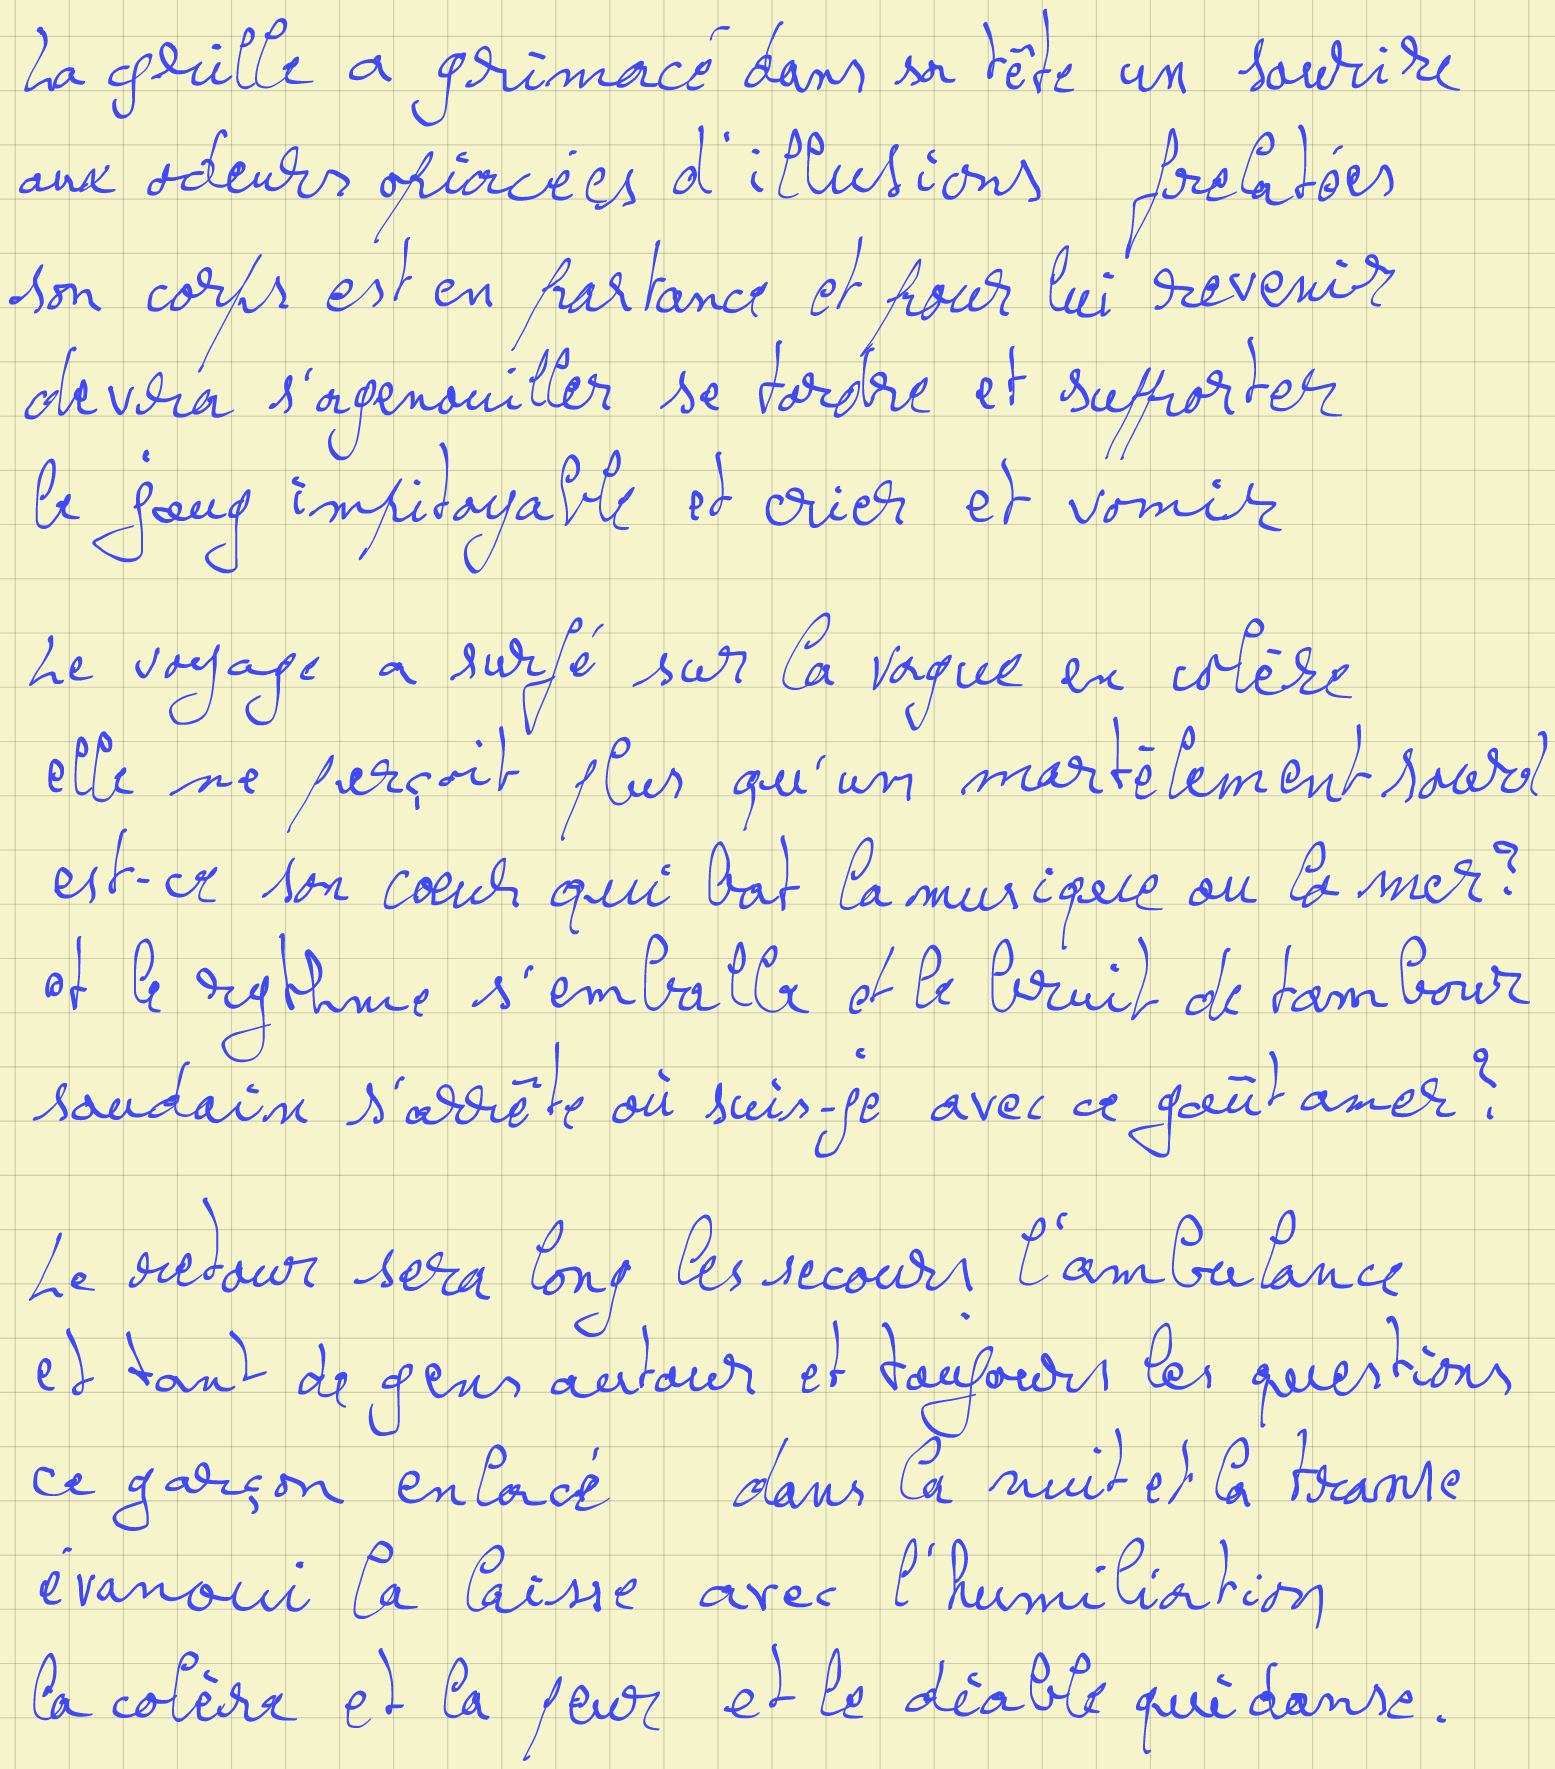 La grille a grimacé dans sa tête un sourire
aux odeurs opiacées d'illusions frelatées
son corps est en partance et pour lui revenir
devra s'agenouiller se tordre et supporter
le joug impitoyable et crier et vomir
Le voyage a surfé sur la vague en colère
elle ne perçoit plus qu'un martèlement sourd
est-ce son cœur qui bat la musique ou la mer?
et le rythme s'emballe et le bruit de tambour
soudain s'arrête où suis-je avec ce goût amer?
Le retour sera long les secours l'ambulance
et tant de gens autour et toujours les questions
ce garçon enlacé dans la nuit et la transe
évanoui la laisse avec l'humiliation
la colère et la peur et le diable qui danse.